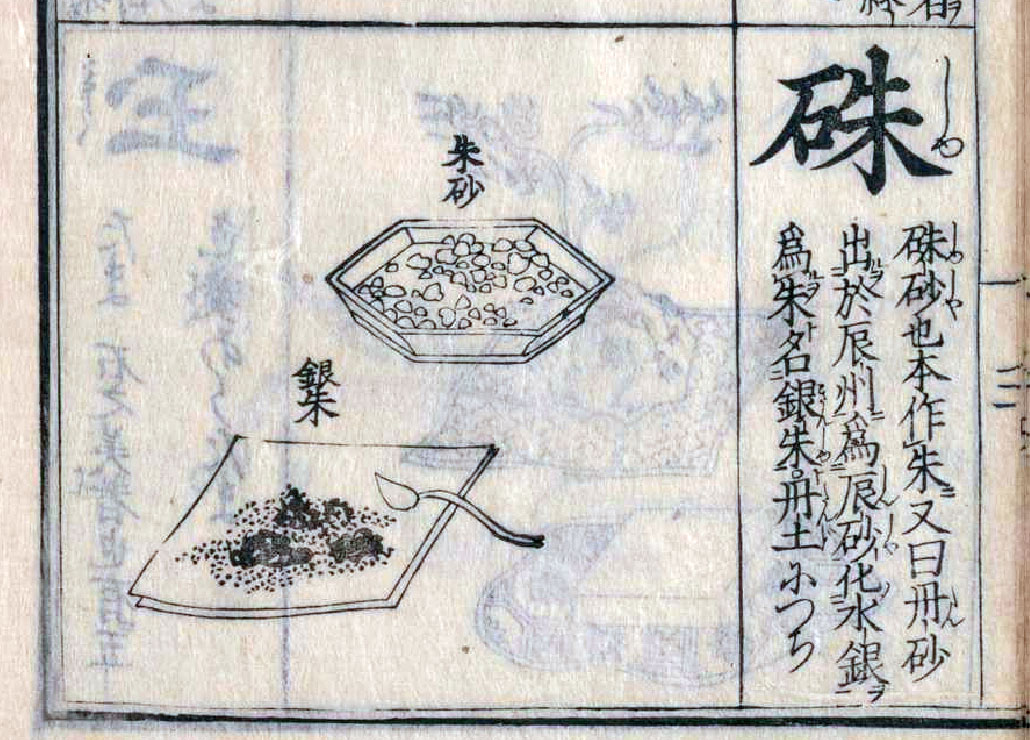 硃
しや
硃砂也本作朱又曰丹砂
出於辰州爲辰砂化水銀
爲朱名銀朱丹土につち
朱砂
銀朱